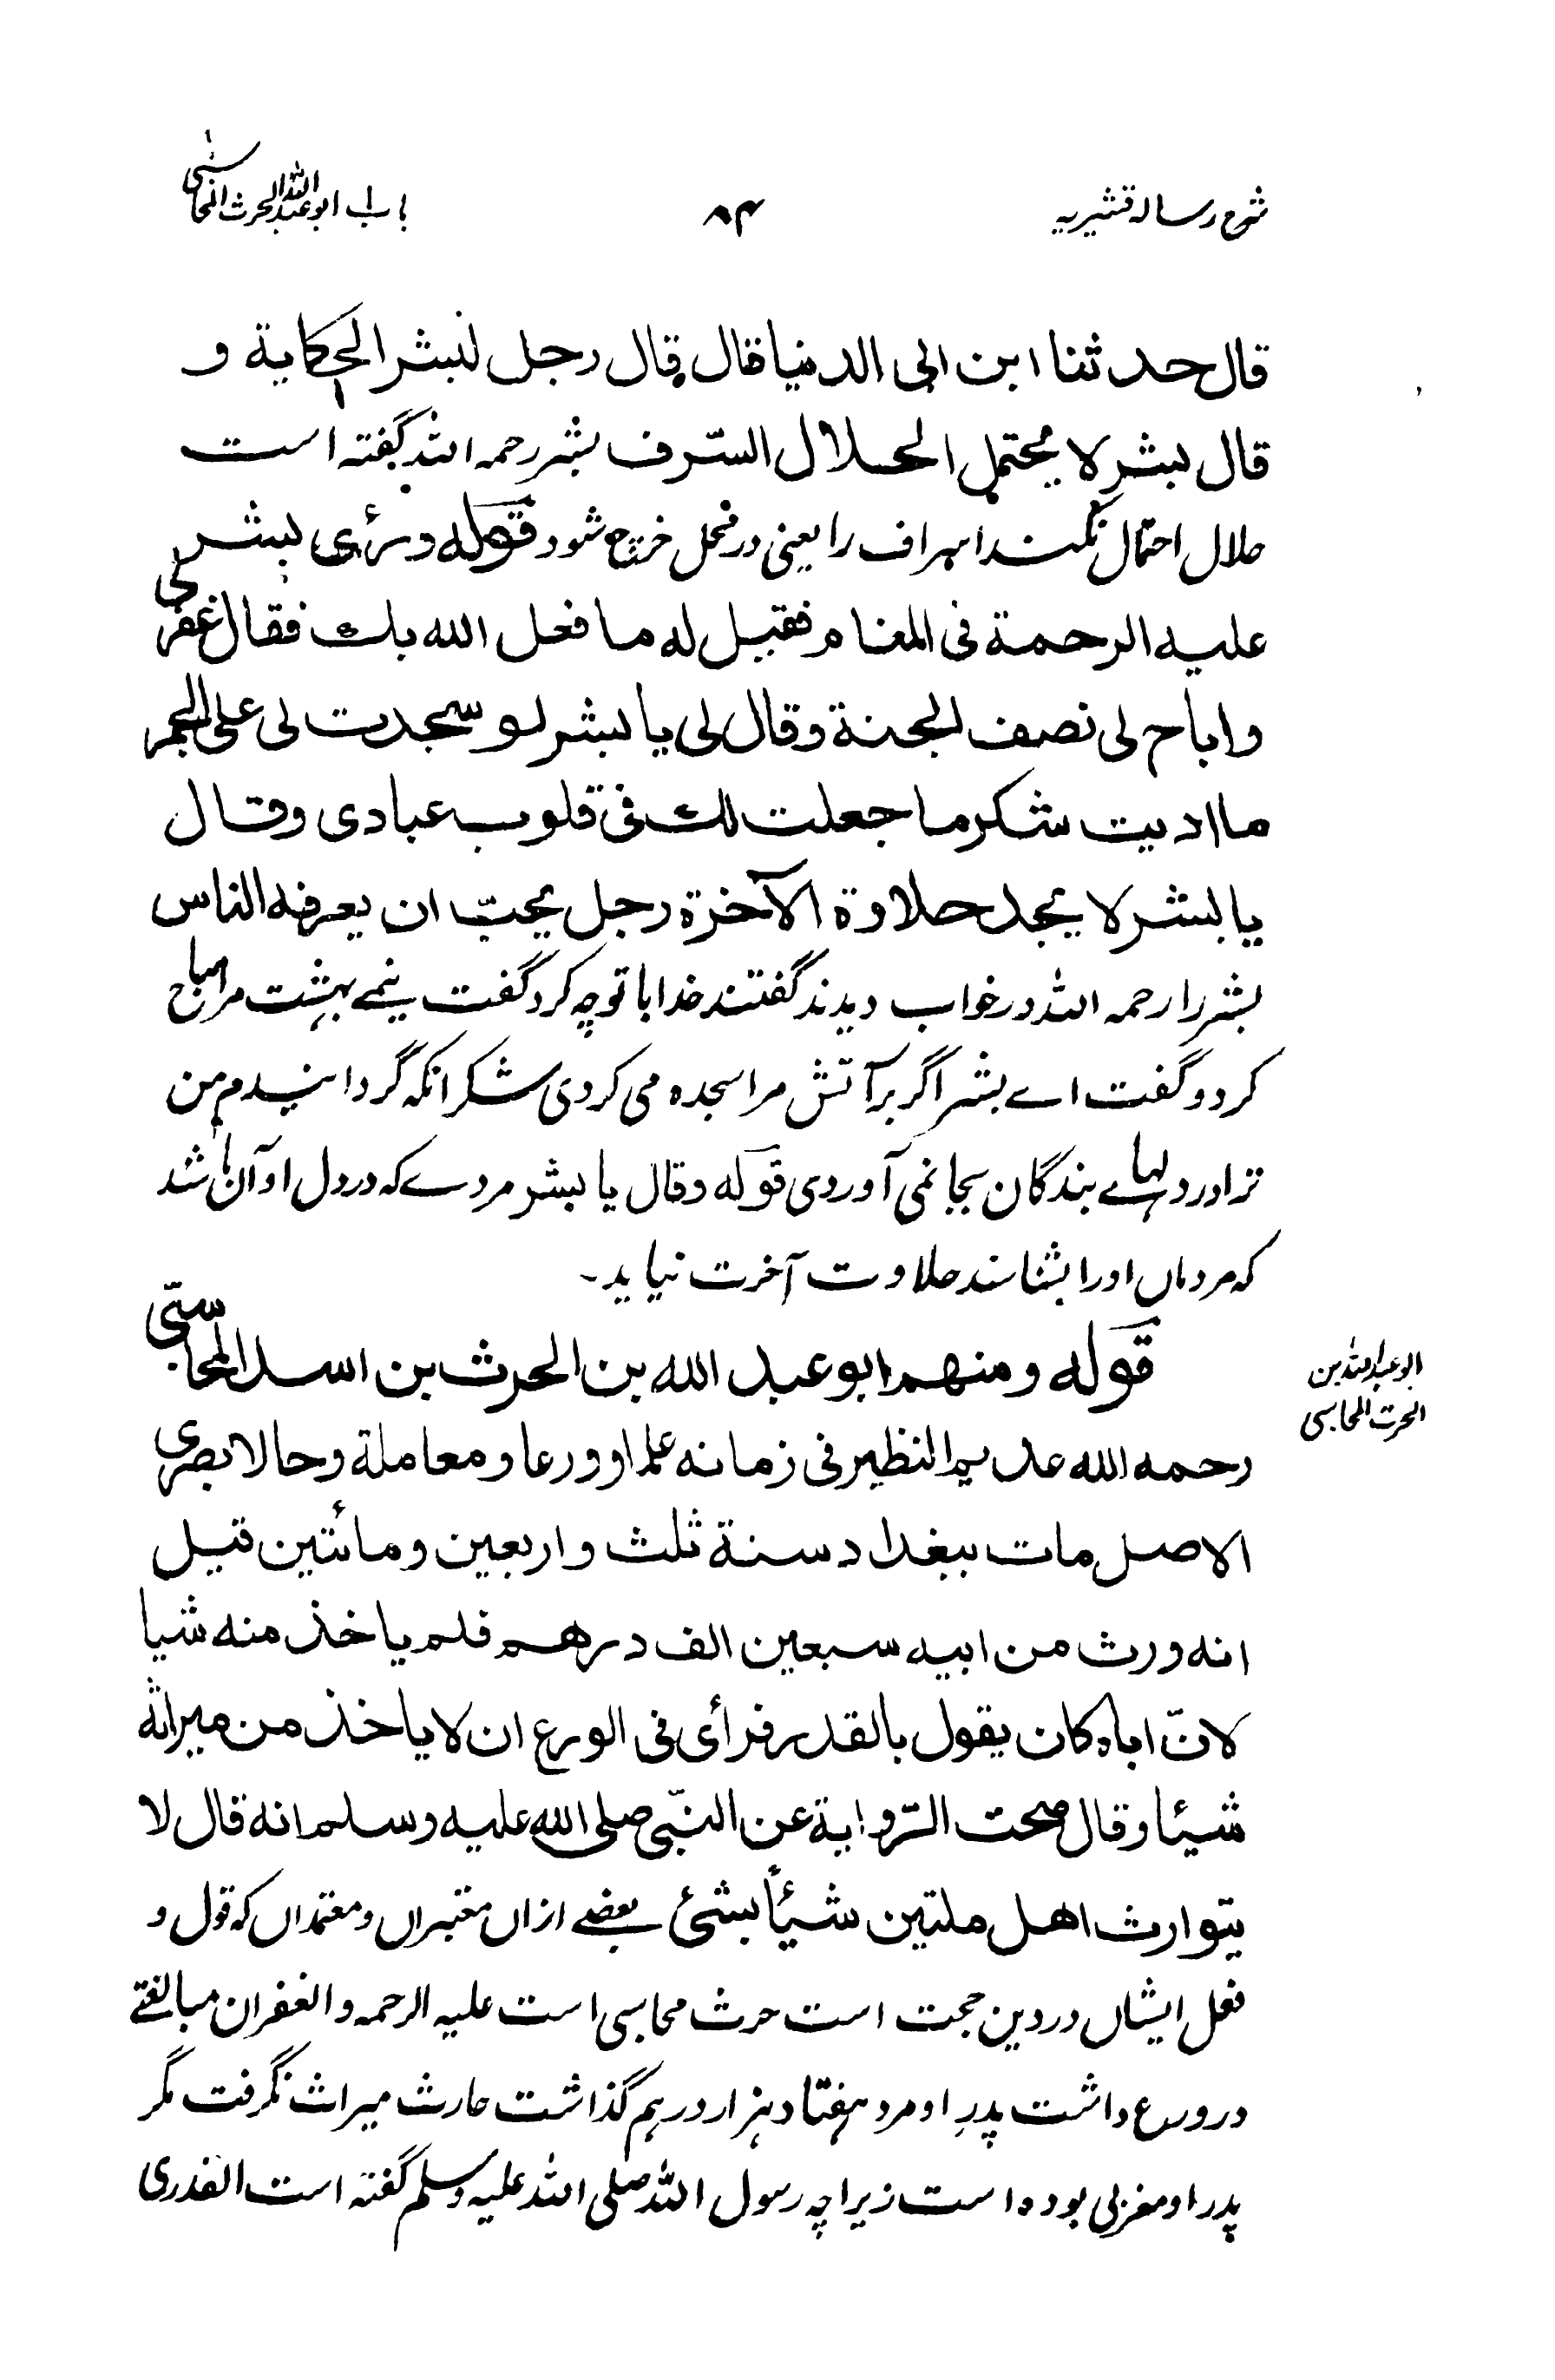 شرح رسالہ قشیریہ ۸۴ باب ابو عبداللہ الحرث المحاسبی
قال حدثنا ابن ابی الدنیا قال قال رجل لبشر الحکایة و
قال بشر لا یحتمل الحلال السّرف بشر رحمہ اللہ گفتہ است
حلال احتمال نکند اسراف را یعنی در محل خرج شود قوله ورُئی بشر
علیه الرحمة فی المنام فقیل له ما فعل الله بك فقال غفر لی
واباح لی نصف الجنة وقال لی یا بشر لو سجدت لی علی الجمر
ما ادیت شکر ما جعلت لك فی قلوب عبادی وقال
یا بشر لا یجد حلاوة الآخرة رجل یحبّ ان یعرفه الناس
بشر را رحمہ اللہ در خواب دیدند گفتند خدا با تو چہ کرد گفت نیمے بہشت مرا مباح
کرد و گفت اے بشر اگر بر آتش مرا سجدہ می کردی شکر انکہ گردانیدم من
ترا در دلہاے بندگان بجا نمی آوردی قوله وقال یا بشر مردے کہ در دل او آن باشد
کہ مردماں او را بشناسند حلاوت آخرت نیابد۔
قوله ومنهم ابو عبد الله بن الحرث بن اسد المحاسبی
ابو عبداللہ بن
الحرث المحاسبی
رحمه الله عدیم النظیر فی زمانه علما وورعا ومعاملة وحالا بصری
الاصل مات ببغداد سنة ثلث واربعین ومأئتین قیل
انه ورث من ابیه سبعین الف درهم فلم یاخذ منه شیا
لانّ اباه کان یقول بالقدر فرأی فی الورع ان لا یاخذ من میراثه
شیئا وقال صحت الرّوایة عن النّبی صلی الله علیه وسلم انه قال لا
یتوارث اهل ملتین شیئاً بشئ بعضے ازاں معتبراں و معتمداں کہ قول و
فعل ایشاں در دین حجت است حرث محاسبی است علیہ الرحمہ والغفران مبالغتے
در ورع داشت پدرِ او مرد ہفتاد ہزار درہم گذاشت حارث میراث نگرفت مگر
پدر او مغربی بودہ است زیراچہ رسول اللہ صلی اللہ علیہ وسلم گفتہ است القدری